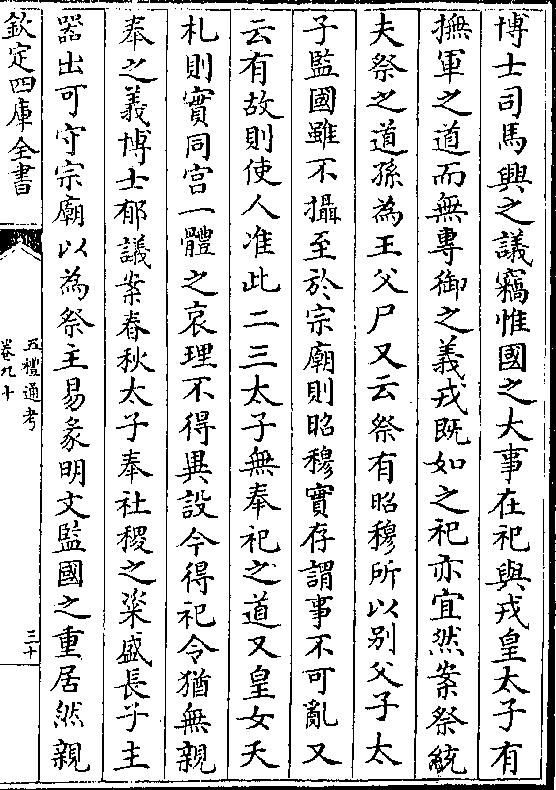 博士司馬興之議竊惟國之大事在祀與戎皇太子有
撫軍之道而無專御之義戎既如之祀亦宜然案祭統
夫祭之道孫為王父尸又云祭有昭穆所以别父子太
子監國雖不攝至於宗廟則昭穆實存謂事不可亂又
云有故則使人准此二三太子無奉祀之道又皇女夭
札則實同宫一體之哀理不得異設令得祀令猶無親
奉之義博士郁議案春秋太子奉社稷之粢盛長子主
器出可守宗廟以為祭主易彖明文監國之重居然親
欽定四庫全書
五禮通考
卷九十
三十